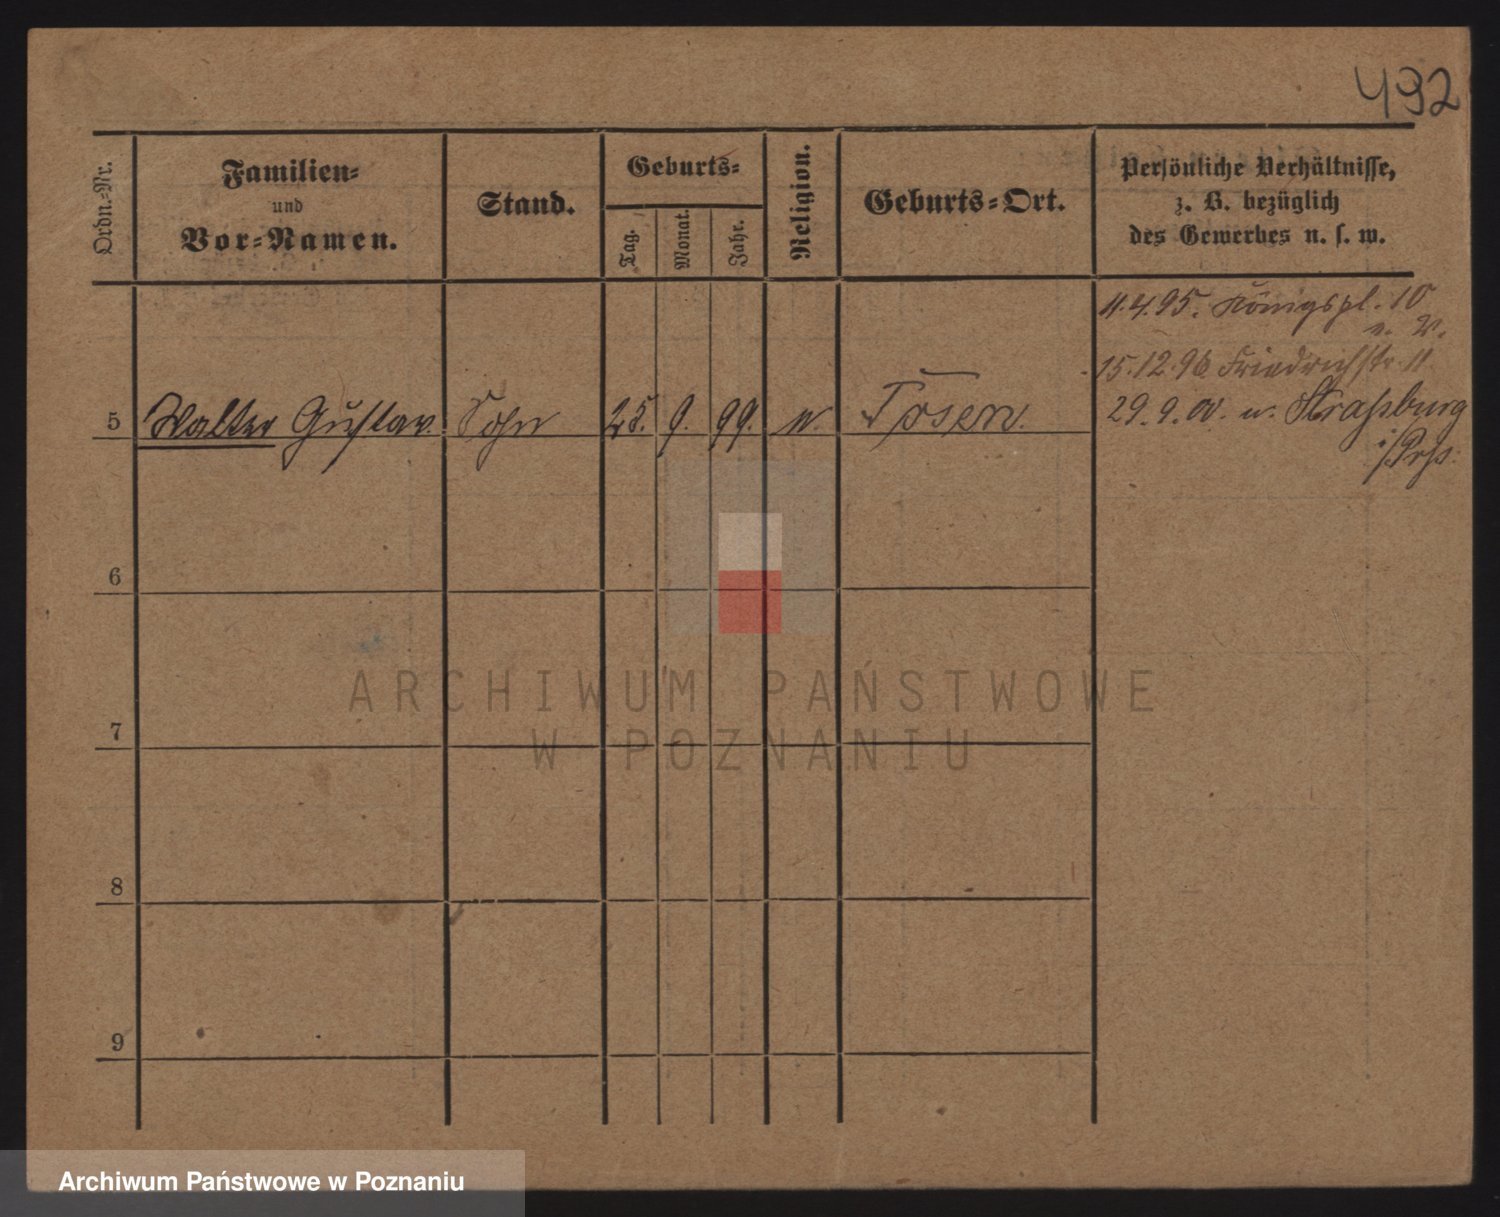 492
Ordn.-Nr.
Familien-
und
Vor-Namen.
Stand.
Geburts-
Tag.
Monat.
Jahr.
Religion.
Geburts-Ort.
Persönliche Verhältnisse,
z. B. bezüglich
des Gewerbes u. s. w.
11.4.95. Königspl. 10
v. W.
15.12.96 Friedrichstr. 11
5 Walter Gustav. Sohn 25. 9. 99. Posen. 29.9.00. n. Straßburg
i/
6
7
8
9
ARCHIWUM PAŃSTWOWE
W POZNANIU
Archiwum Państwowe w Poznaniu